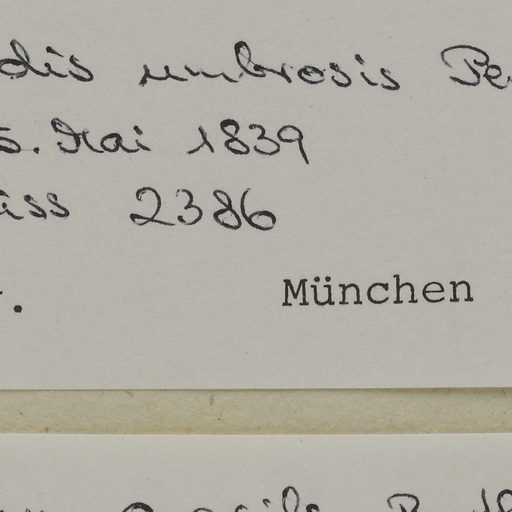 dis umbrosis Pe
5. Mai 1839
äss 2386
München